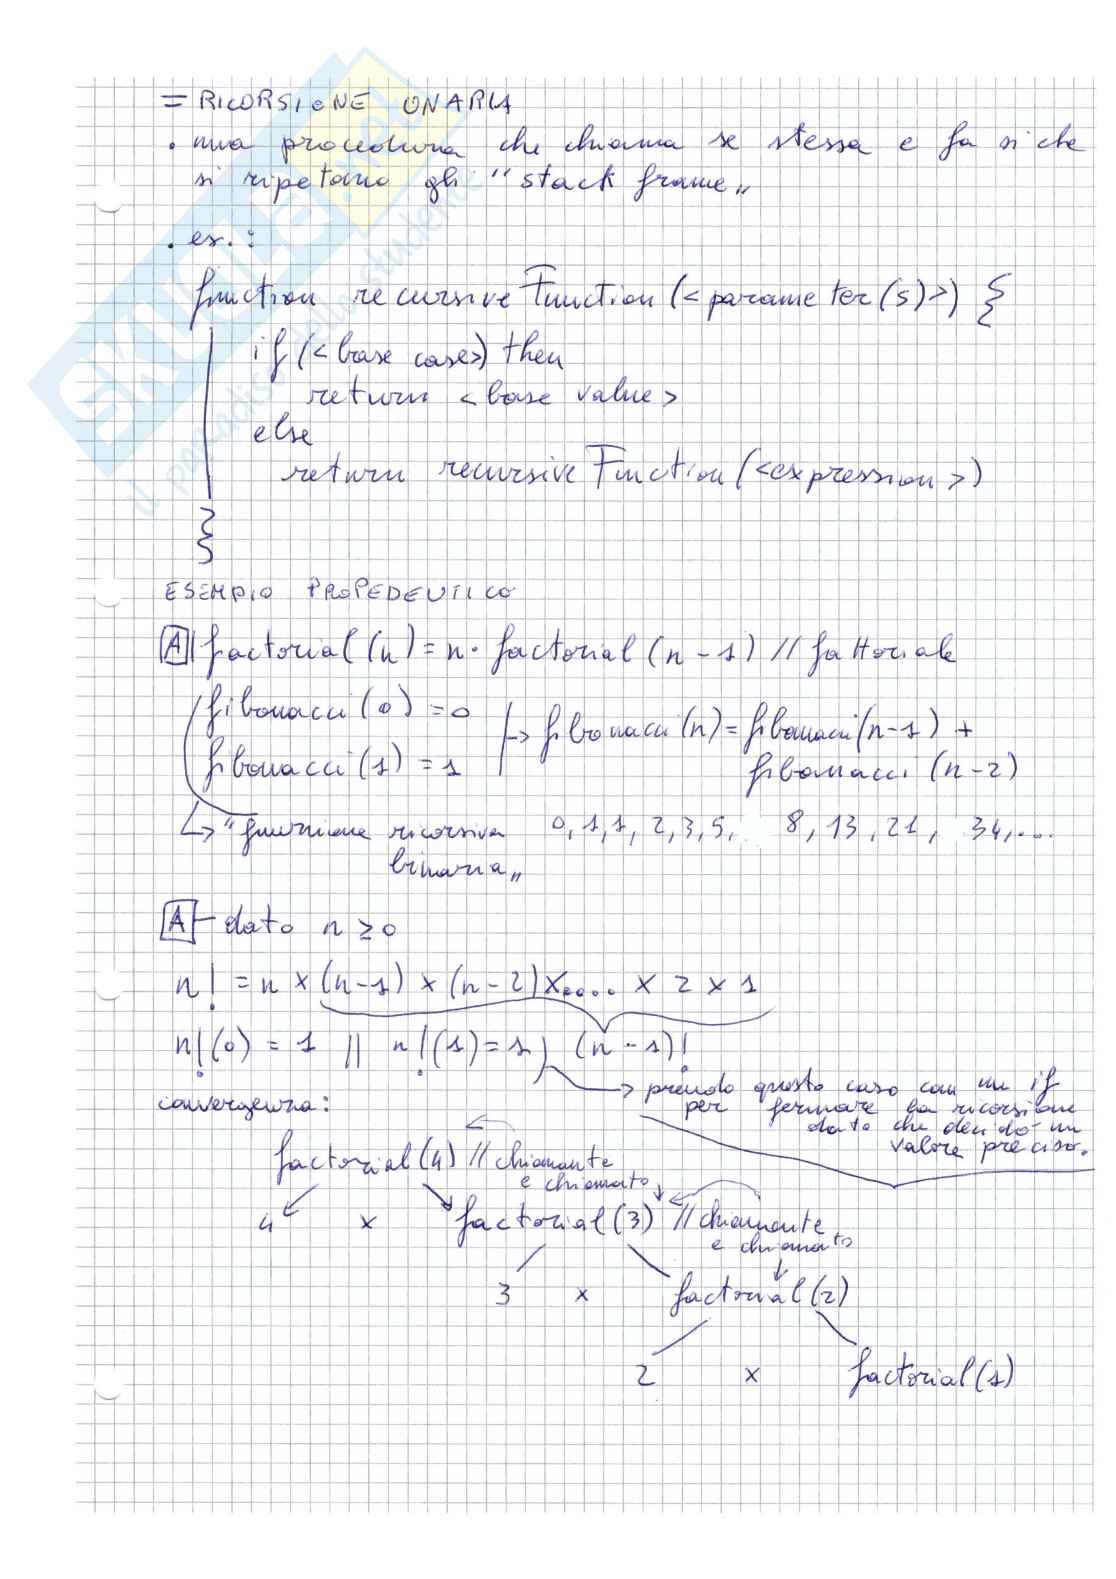 = RICORSIONE UNARIA
. una procedura che chiama se stessa e fa si che
si ripetano gli "stack frame„
. es.:
function recursive Function (<parameter(s)>) {
if (<base case>) then
return <base value>
else
return recursive Function (<expression>)
}
ESEMPIO PROPEDEUTICO
A factorial (n) = n · factorial (n-1) // fattoriale
fibonacci (0) = 0
fibonacci (1) = 1
→ fibonacci (n) = fibonacci (n-1) +
fibonacci (n-2)
→ "funzione ricorsiva 0, 1, 1, 2, 3, 5, 8, 13, 21, 34, ...
binaria„
A - dato n ≥ 0
n! = n x (n-1) x (n-2) x .... x 2 x 1
n!(0) = 1 || n!(1) = 1 (n-1)!
→ prendo questo caso con un if
per fermare la ricorsione
dato che decido un
valore preciso.
convergenza:
factorial (4) // chiamante
e chiamato
4 x factorial (3) // chiamante
e chiamato
3 x factorial (2)
2 x factorial (1)
SKUOLA.net
il paradiso dello studente